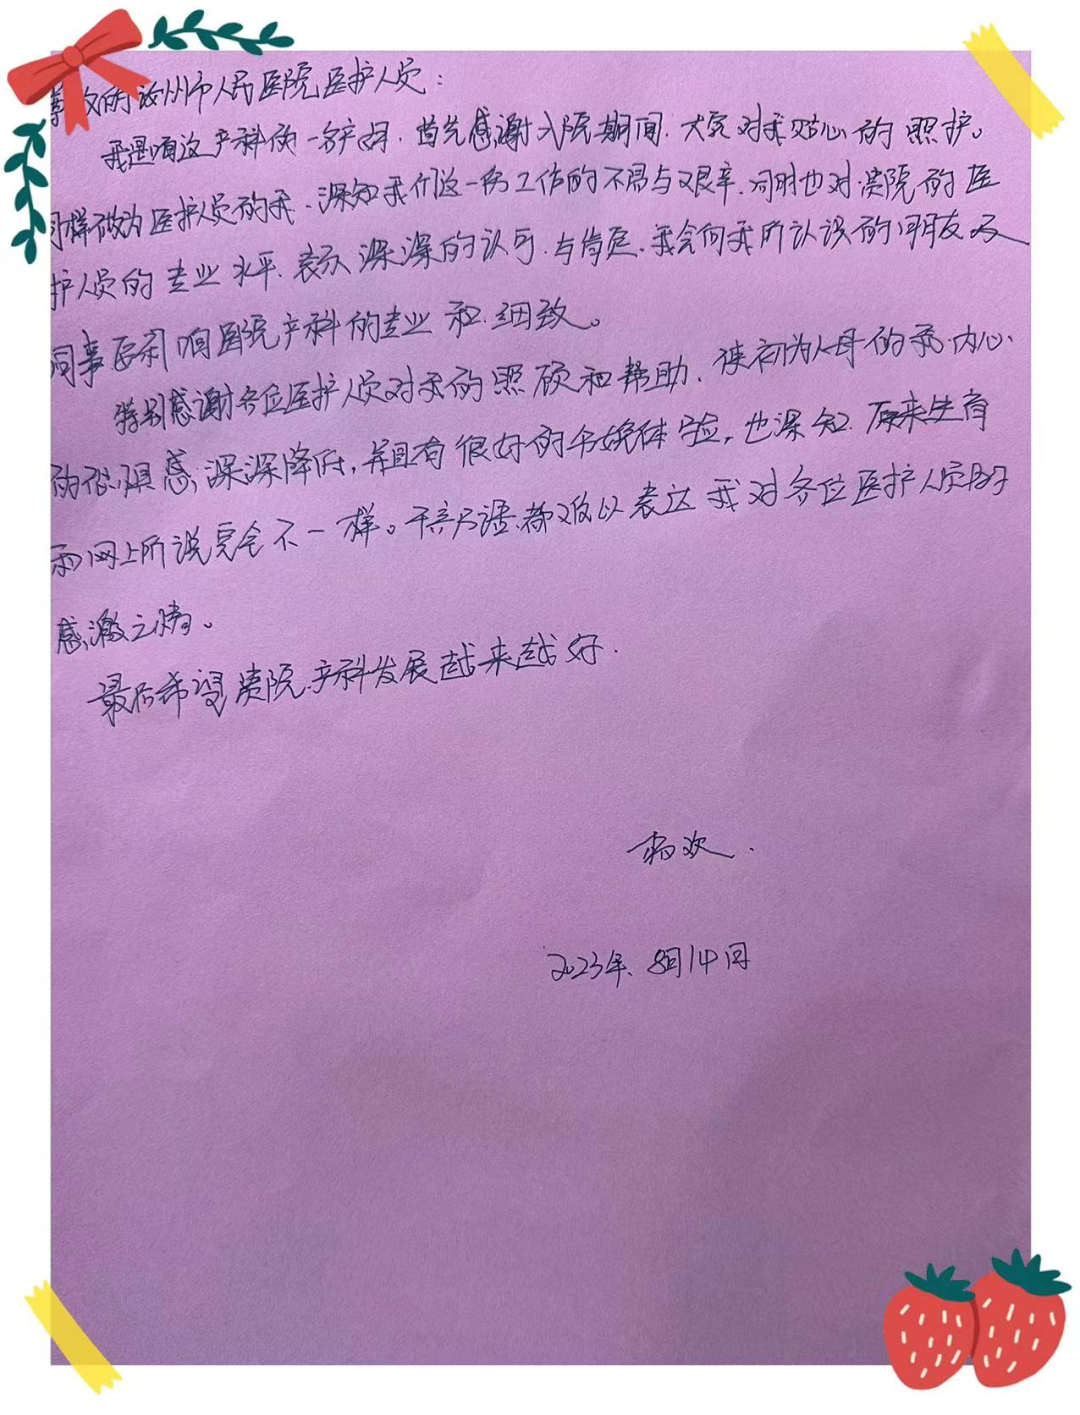 尊敬的汝州市人民医院医护人员：
我是顺这产科的一名产妇．首先感谢入院期间．大家对我贴心的照护。
同样做为医护人员的我．深知我们这一份工作的不易与艰辛．同时也对贵院的医
护人员的专业水平．表示深深的认可．与肯定．我会向我所认识的朋友及
同事 贵院产科的专业和．细致。
特别感谢各位医护人员对我的照顾和帮助．使初为人母的我．内心．
的恐惧感深深降低，并且有很好的分娩体验，也深知．原来生育
和网上所说完全不一样。千言万语．都难以表达我对各位医护人员的
感激之情。
最后希望贵院．产科发展越来越好．
杨欢．
2023年．8月14日